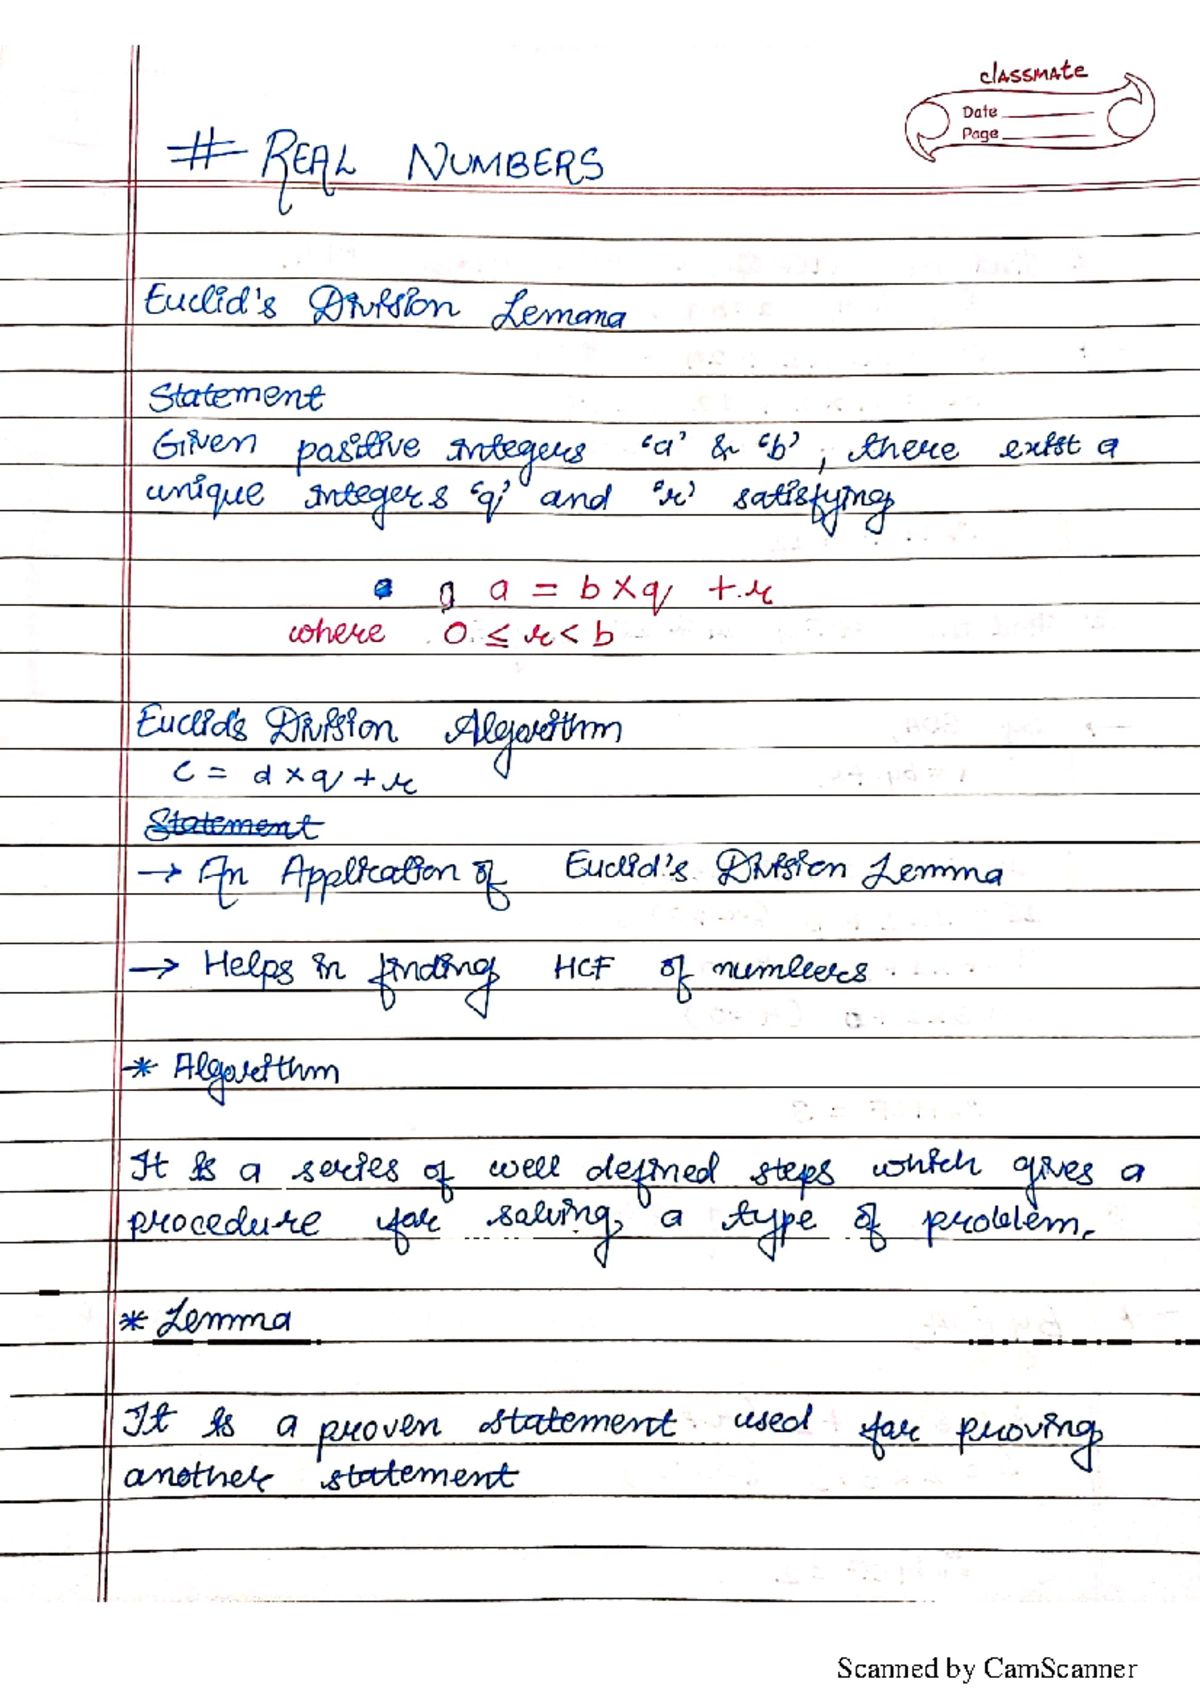 classmate
Date
Page
# REAL NUMBERS
Euclid's Division Lemma
Statement
Given positive integers 'a' & 'b', there exist a
unique integers 'q' and 'r' satisfying
a = b × q + r
where 0 ≤ r < b
Euclid's Division Algorithm
c = d × q + r
Statement
→ An Application of Euclid's Division Lemma
→ Helps in finding HCF of numbers
* Algorithm
It is a series of well defined steps which gives a
procedure for solving a type of problem.
* Lemma
It is a proven statement used for proving
another statement
Scanned by CamScanner